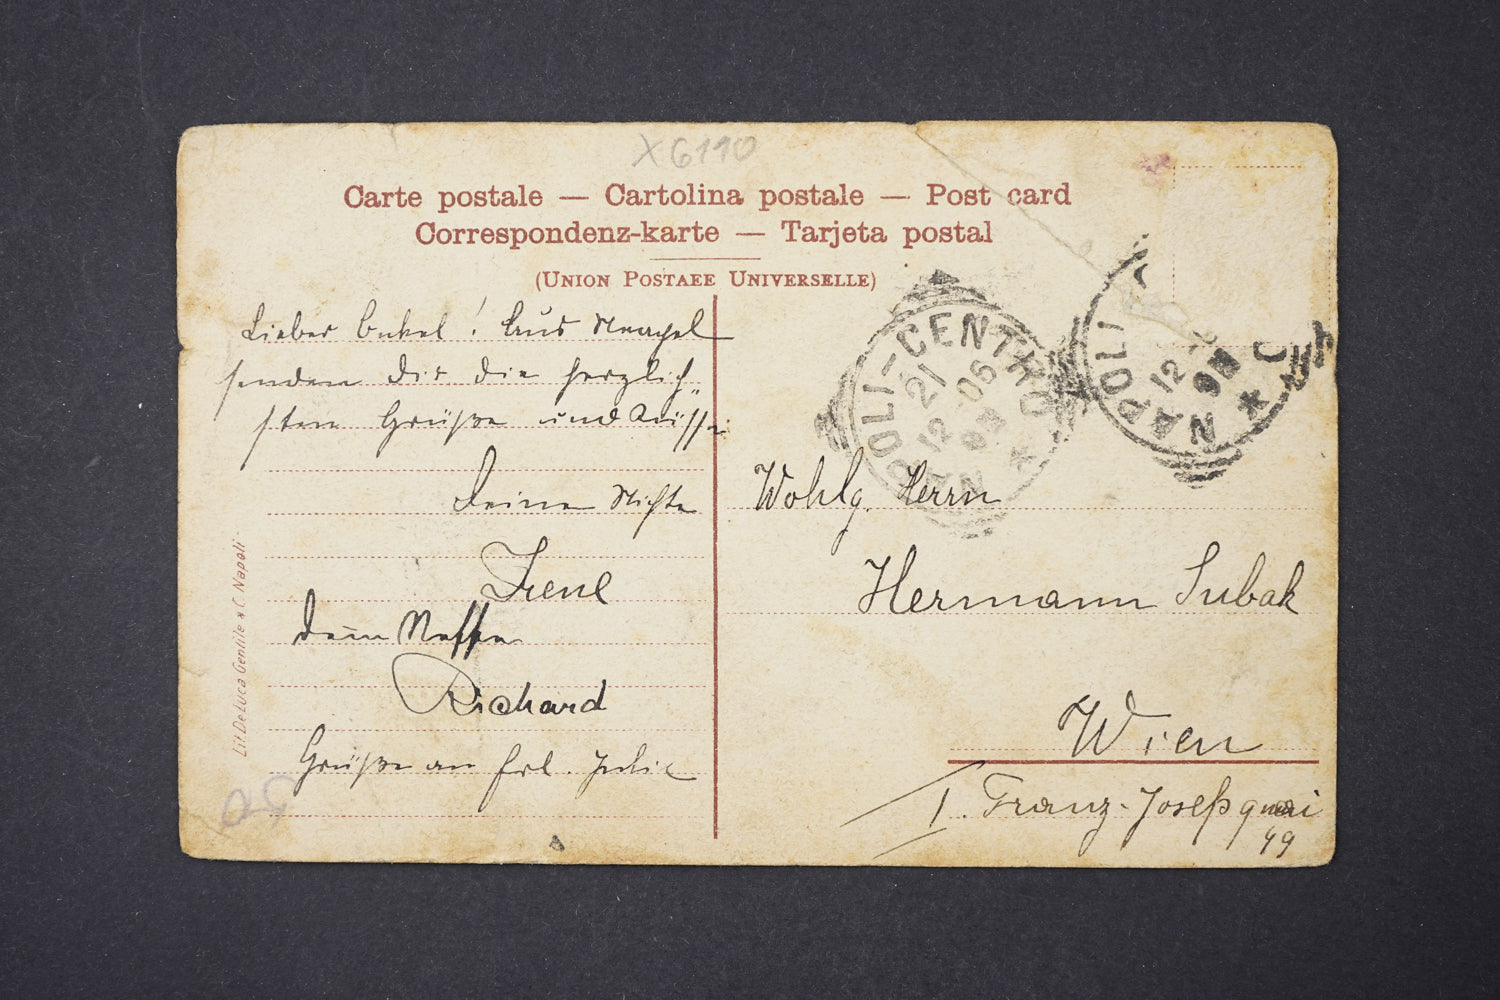 X 6110
Carte postale — Cartolina postale — Post card
Correspondenz-karte — Tarjeta postal
(Union Postaee Universelle)
Lieber Onkel! Aus Neapel
senden Dir die herzlich„
sten Grüße und Küsse
Deine Nichte
Irene
Dein Neffe
Richard
Grüße an Frl. Julie
Lit. De Luca Gentile & C. Napoli
NAPOLI-CENTRO
21
12-05
NAPOLI C
12
Wohlg. Herrn
Hermann Subak
Wien
I. Franz-Josefsquai
49